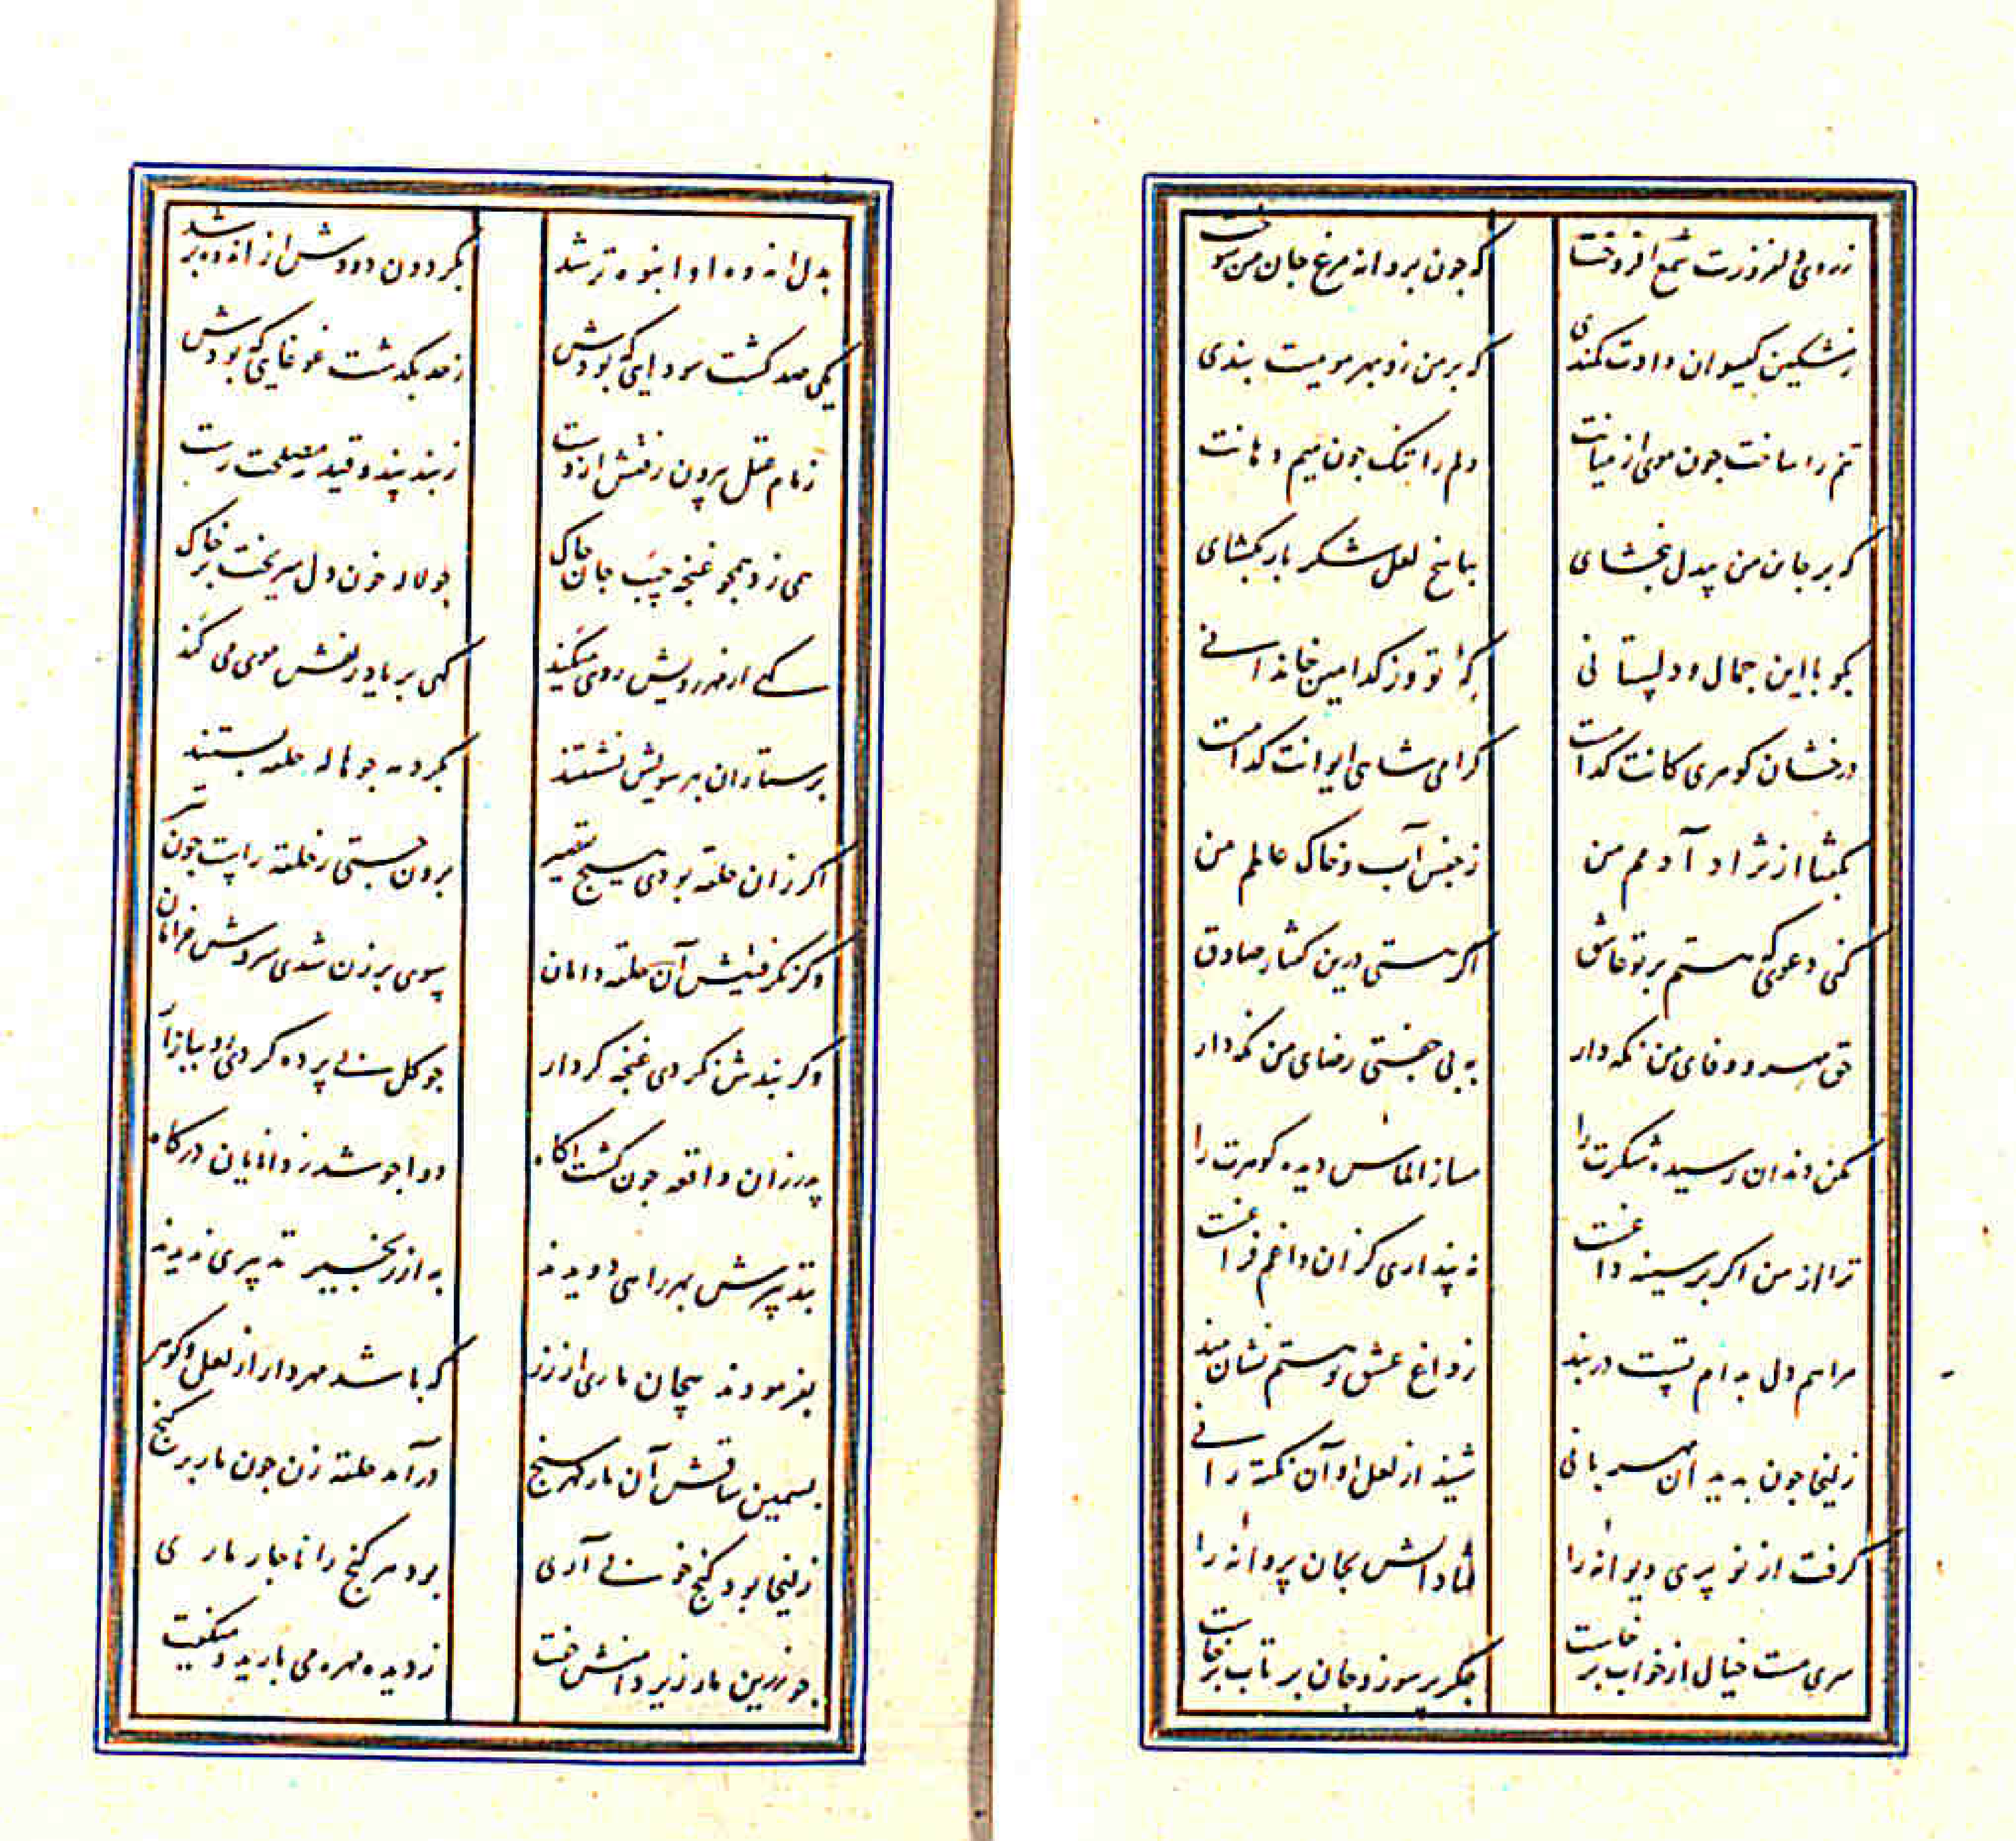 ز روی دلفروزت شمع افروخت که جون پروانه مرغ جان من سوخت
ز مشکین کیسوان دادت کمندی که بر من زو بهر موییت بندی
تنم را ساخت جون موی از میانت دلم را تنک جون میم دهانت
که بر جان من بیدل ببخشای بپاسخ لعل شکر بار بکشای
بکو با این جمال و دلستانی که‌ٔ تو وز کدامین خاندانی
درخشان کوهری کانت کدامست کرامی شاهی ایوانت کدامست
بکفتا از نژاد آدمم من ز جنس آب و خاک عالمم من
کنی دعوی که هستم بر تو عاشق اکر هستی درین کفتار صادق
حق مهر و وفای من نکه دار به بی جفتی رضای من نکه دار
مکن دندان رسیده شکرت را مساز الماس دیده کوهرت را
ترا از من اکر بر سینه داغست نه پنداری کزان داغم فراغست
مرا هم دل بدام تست در بند ز داغ عشق تو هستم نشانمند
زلیخا جون بدید آن مهربانی شنید از لعل او آن نکته رانی
کرفت از نو پری دیوانه را فتاد آتش بجان پروانه را
سری مست خیال از خواب برخاست جکر پر سوز و جان پر تاب برخاست
بدل اندوه او انبوه تر شد بکردون دودش از اندوه بر شد
یکی صد کشت سودایی که بودش ز حد بکذشت غوغایی که بودش
زمام عقل بیرون رفتش از دست ز بند پند و قید مصلحت رست
همی زد همجو غنجه جیب جان جاک جو لاله خون دل میریخت بر خاک
کهی از مهر رویش روی میکند کهی بر یاد زلفش موی می کند
پرستاران بهر سویش نشستند بکرد مه جو هاله حلقه بستند
اکر زان حلقه بودی هیچ تقصیر برون جستی ز حلقه راست جون تیر
وکر نکرفتیش آن حلقه دامان بسوی برزن شدی سروش خرامان
وکر بندش نکردی غنجه کردار جو کل بی پرده کردی رو ببازار
پدر زان واقعه جون کشت آکاه دوا جو شد ز دانایان درکاه
بتدبیرش بهر راهی دویدند به از زنجیر تدبیری ندیدند
بفرمودند پیچان ماری از زر که باشد مهره دار از لعل و کوهر
بسیمین ساقش آن مار کهر سنج درآمد حلقه زن جون مار بر کنج
زلیخا بود کنج خوبی آری بود هر کنج را ناجار ماری
جو زرین مار زیر دامنش خفت ز دیده مهره می بارید و میکفت